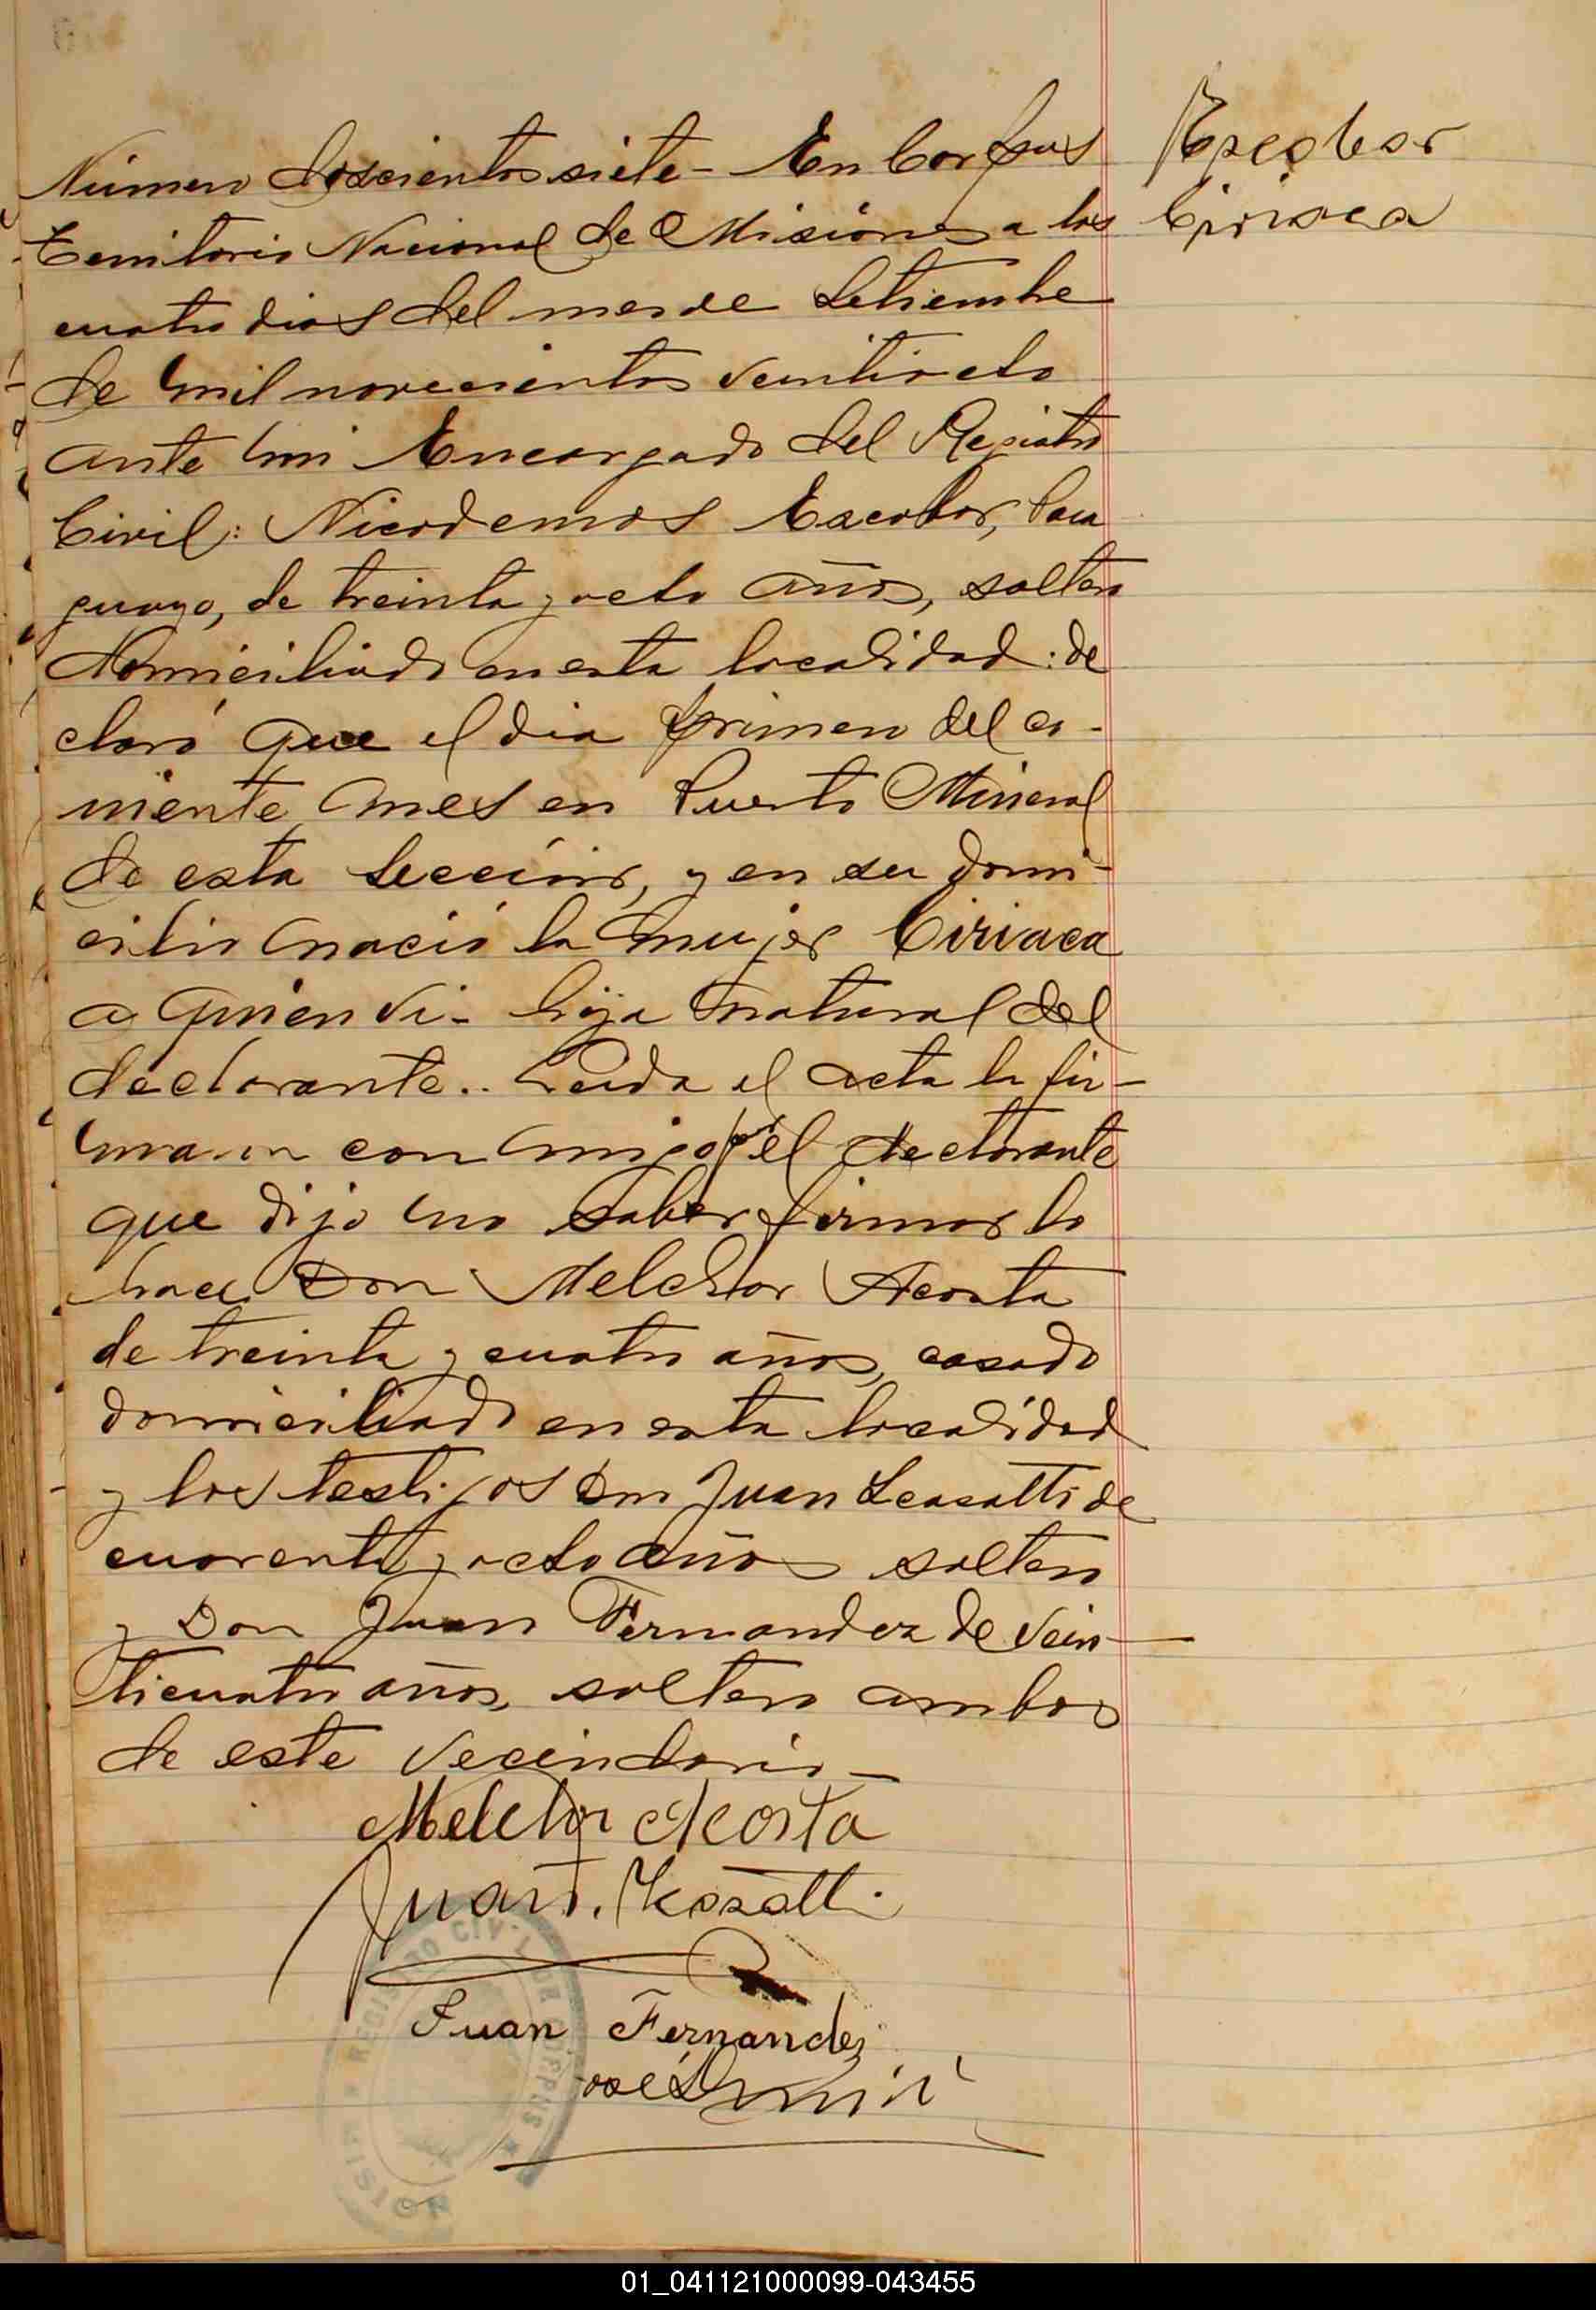 Escobar
Ciriaca
Número doscientos siete - En Corpus
Territorio Nacional de Misiones a los
cuatro dias del mes de Setiembre
de mil novecientos veintiocho
ante mi Encargado del Registro
Civil: Nicodemos Escobar, Para
guayo, de treinta y ocho años, soltero
domiciliado en esta localidad: de
claró que el dia primero del co-
rriente mes en Puerto Mineral
de esta Sección, y en su domi-
cilio nació la mujer Ciriaca
a quien vi - hija natural del
declarante.. Leida el acta la fir-
maron conmigo por el declarante
que dijo no saber firmar lo
hace Don Melchor Acosta
de treinta y cuatro años, casado
domiciliado en esta localidad
y los testigos Don Juan de
cuarenta y ocho años soltero
y Don Juan Fernandez de vein-
ticuatro años, soltero ambos
de este vecindario -
Melchor Acosta
Juan
Juan Fernandez
José
REGISTRO CIVIL DE CORPUS
MISIONES
01_041121000099-043455